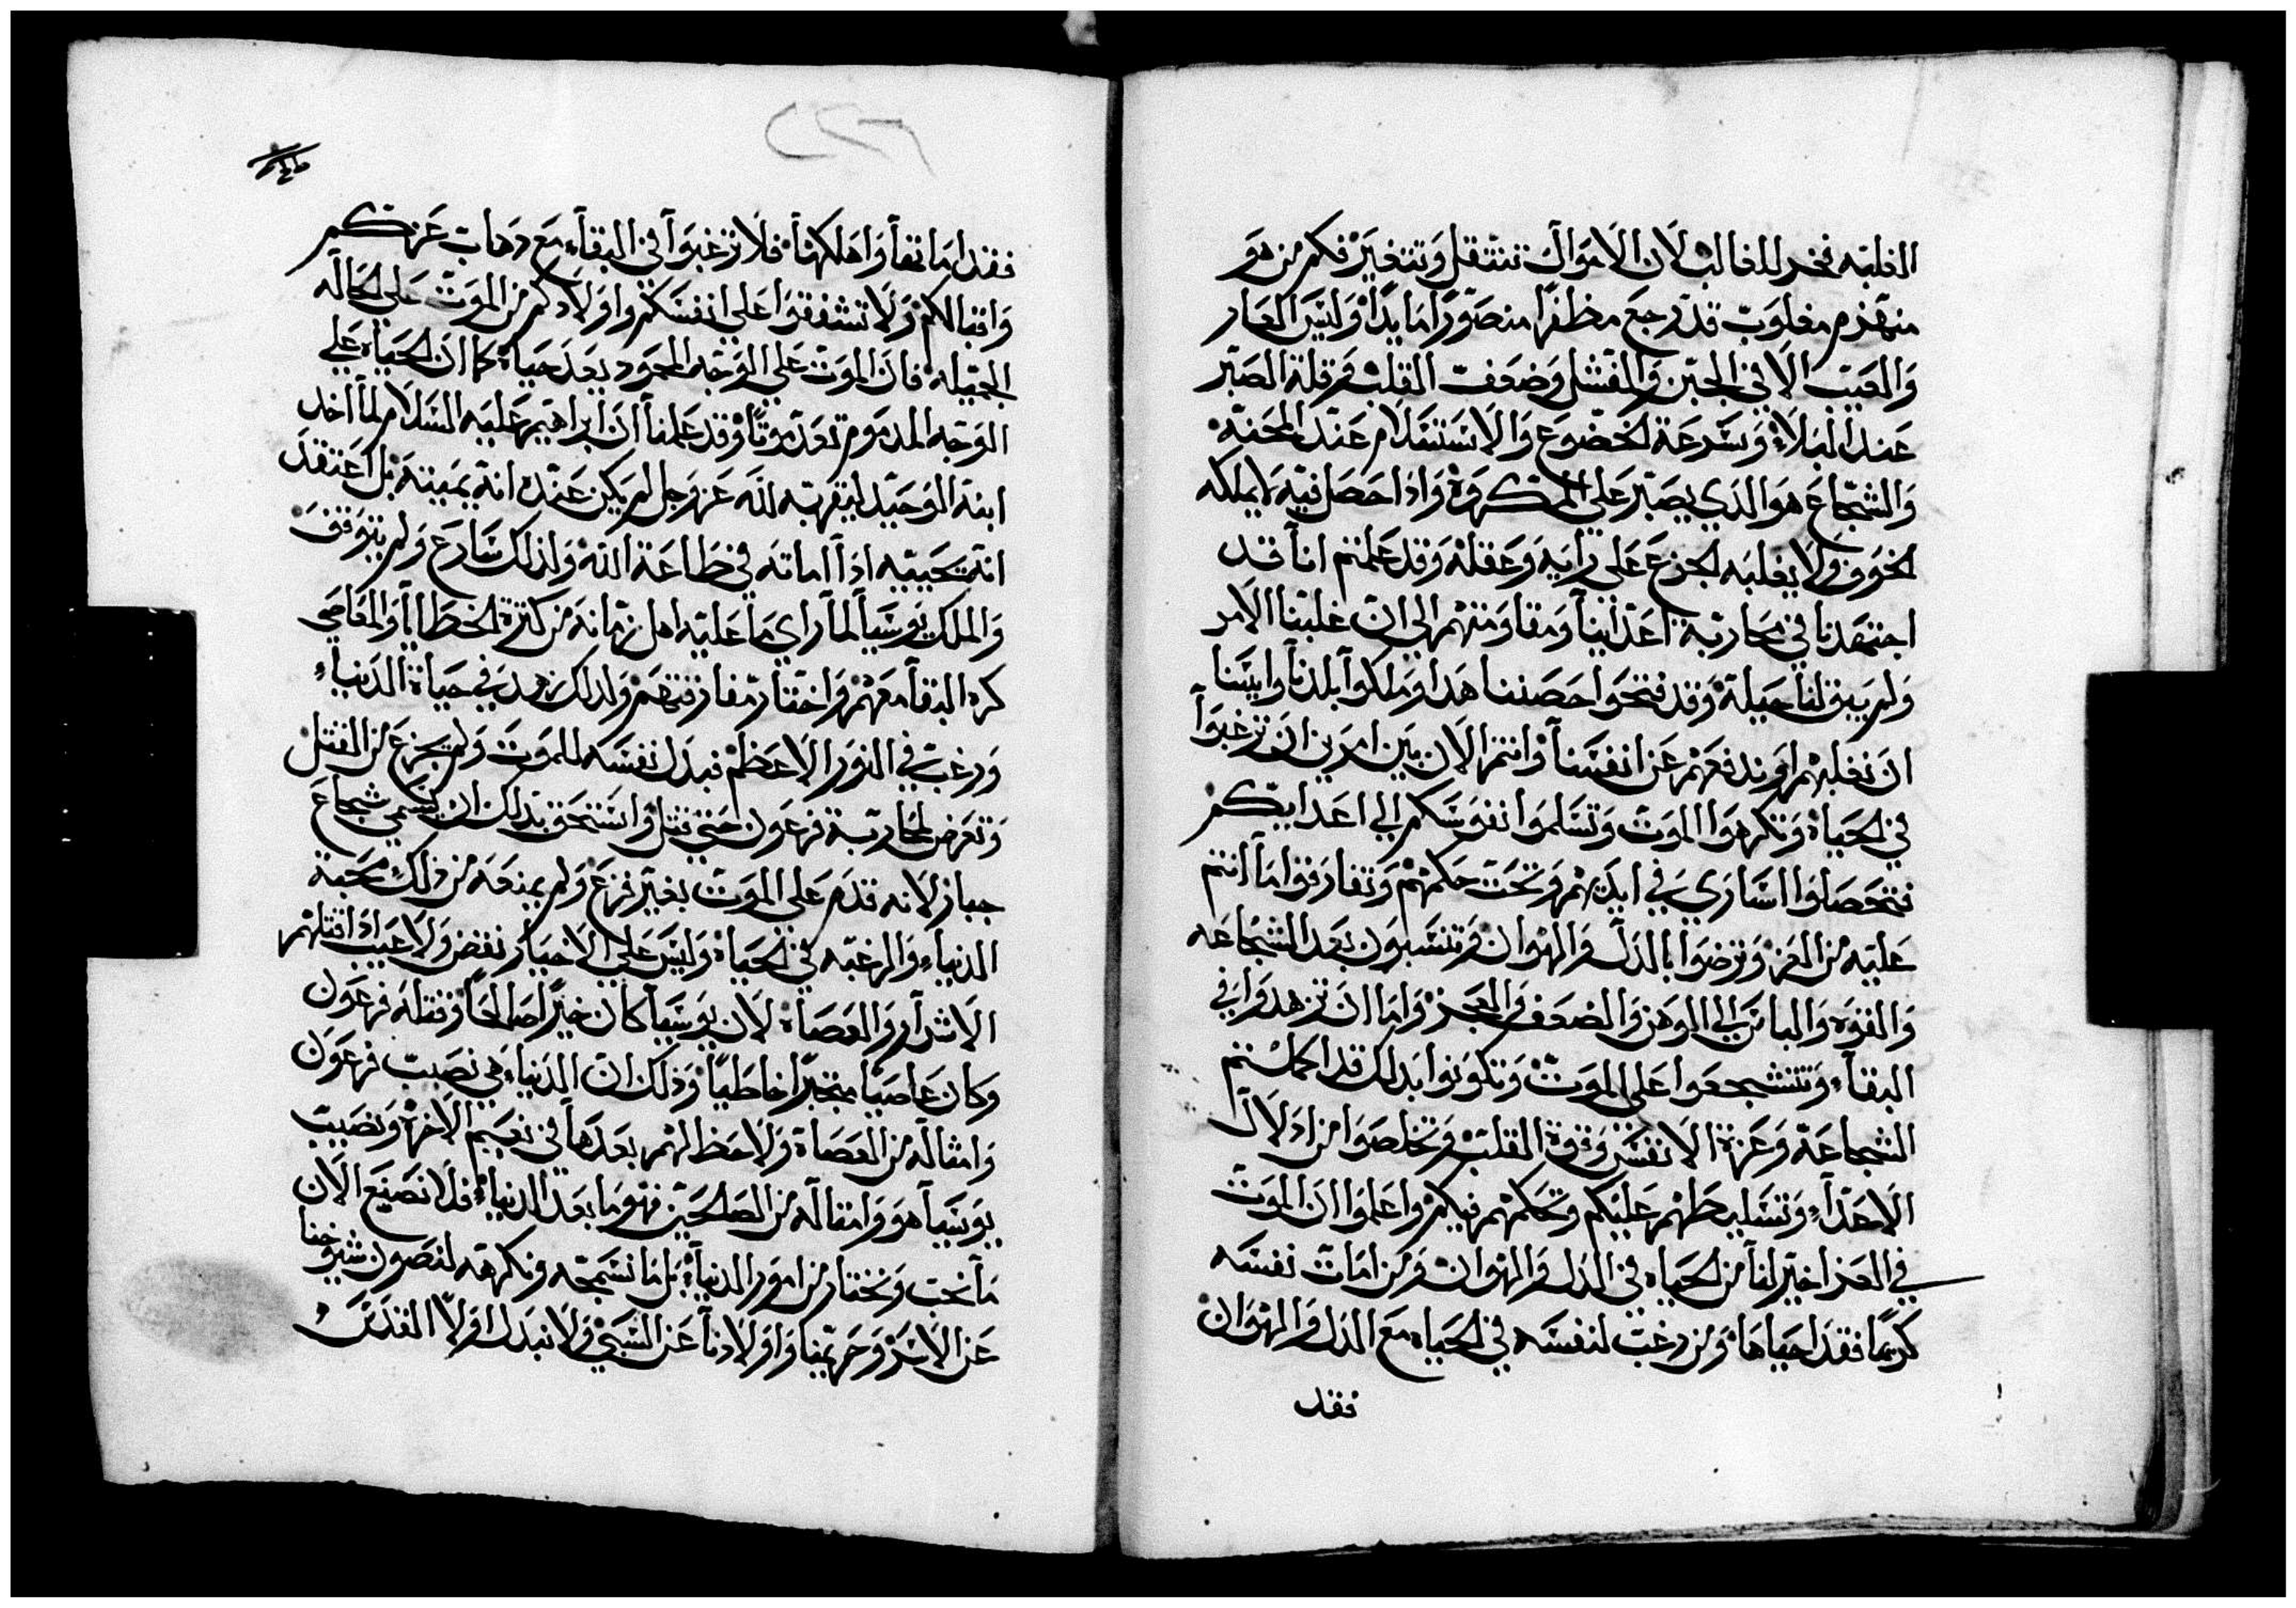 الغلبه فخر للغالب لان الاموال تنتقل وتتغير فكم من هو
منهزم مغلوب قد رجع مظفرا منصورا مايدا وليس العار
والعيب الا في الجبن والفشل وضعف القلب وقلة الصبر
عند البلاء وسرعة الخضوع والاستسلام عند المحنه
والشجاع هو الذي يصبر على المكروه واذا حصل فيه لا يملكه
الخوف ولا يغلبه الجزع على رايه وعقله وقد علمتم انا قد
اجتهدنا في محاربة اعداينا ومقاومتهم الى ان غلبنا الامر
ولم يبق لنا حيلة وقد فتحوا حصننا هذا وملكوا بلدنا وايسنا
ان نغلبهم او ندفعهم عن انفسنا وانتم الان بين امرين ان ترغبوا
في الحياه وتكرهوا الموت وتسلموا نفوسكم الي اعدايكم
فتحصلوا اساري في ايديهم وتحت حكمهم وتفارقوا ما انتم
عليه من العز وترضوا بالذل والهوان وتنسبون بعد الشجاعه
والقوه والباس الي الوهن والضعف والعجز واما ان تزهدوا في
البقاء وتتشجعوا على الموت وتكونوا بذلك قد اكملتم
الشجاعة وعزة الانفس وقوة القلب وتخلصوا من اذلال
الاعداء وتسليطهم عليكم وتحكمهم فيكم واعلموا ان الموت
في العز اخير لنا من الحياه في الذل والهوان ومن امات نفسه
كريما فقد احياها ومن رغب لنفسه في الحياه مع الذل والهوان
فقد
فقد اماتها واهلكها فلا ترغبوا في البقاء مع ذهاب عزكم
واقبالكم ولا تشفقوا على انفسكم واولادكم من الموت على الحاله
الجميله فان الموت على الوجه المحمود يعد حياة كما ان الحياه على
الوجه المذموم تعد موتا وقد علمنا ان ابراهيم عليه السلام لما اخد
ابنه الوحيد ليقربه لله عز وجل لم يكن عنده انه يميته بل اعتقد
انه يحييه اذا اماته في طاعة الله ولذلك سارع ولم يتوقف
والملك يوسيا لما راى ما عليه اهل زمانه من كثرة الخطايا والمعاصي
كره البقا معهم واختار مفارقتهم ولذلك زهد في حياة الدنيا
ورغب في النور الاعظم فبذل نفسه للموت ولم يجزع من القتل
وتعرض لمحاربة فرعون حتى قتل واستحق بذلك ان يسمي شجاع
جبار لانه قدم على الموت بغير فزع ولم يمنعه من ذلك محبة
الدنيا والرغبه في الحياه وليس على الاخيار نقص ولا عيب اذا قتلهم
الاشرار والعصاه لان يوسيا كان خيرا صالحا وقتله فرعون
وكان عاصيا متجبرا خاطيا وذلك ان الدنيا هي نصيب فرعون
وامثاله من العصاة ولا حظ لهم بعدها في نعيم الاخرة ونصيب
يوسيا هو وامثاله من الصالحين فهو ما بعد الدنيا فلا نصنع الان
ما نحب ونختار من امور الدنيا بل ما نسمجه ونكرهه لنصون شيوخنا
عن الاسر وحريمنا واولادنا عن السبي ولا نبدل اولا القدس